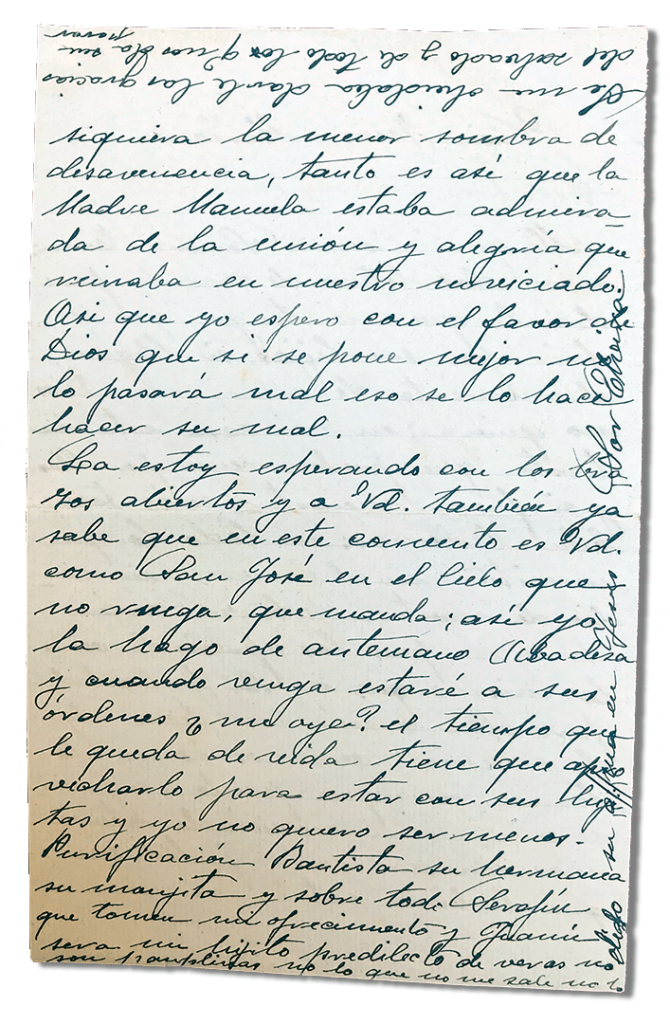 siquiera la menor sombra de
desavenencia, tanto es así que la
Madre Manuela estaba admira-
da de la unión y alegría que
reinaba en nuestro noviciado.
Asi que yo espero con el favor de
Dios que si se pone mejor no
lo pasará mal eso se lo hace
hacer su mal.
La estoy esperando con los bra
zos abiertos y a Vd. también ya
sabe que en este convento es Vd.
como San José en el Cielo que
no ruega, que manda; así yo
la hago de antemano Abadesa
y cuando venga estaré a sus
órdenes ¿me oye? el tiempo que
le queda de vida tiene que apro
vecharlo para estar con sus hiji
tas y yo no quiero ser menos.
Purificación Bautista su hermana
su monjita y sobre todo Serafín
que tomen mi ofrecimiento y Juani
sera mi hijito predilecto de veras no
son no lo que no me sale no lo
digo su affma en Jesus Sor Elvira
Se me olvidaba darle las gracias
del salvado y de todo los q nos da sin
parar